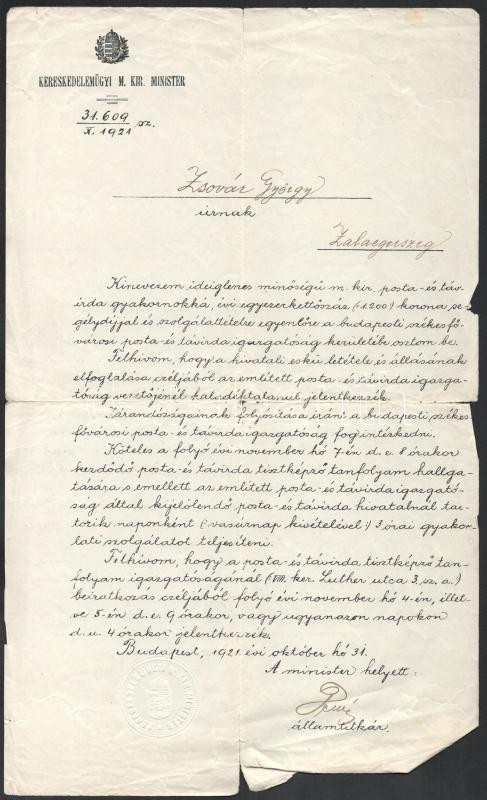 KERESKEDELEMÜGYI M. KIR. MINISTER
31.609 sz.
X. 1921
Zsovár György
úrnak
Zalaegerszeg
Kinevezem ideiglenes minőségű m. kir. posta- és táv-
írda gyakornokká, évi egyezerkettőszáz (:1.200:) korona se-
gélydíjjal és szolgálattételre egyenlőre a budapesti székesfő-
városi posta- és távírda igazgatóság kerületébe osztom be.
Felhívom, hogy a hivatali eskü letétele és állásának
elfoglalása czéljából az említett posta- és távírda igazga-
tóság vezetőjénél haladéktalanul jelentkezzék.
Járandóságainak folyósítása iránt a budapesti székes-
fővárosi posta- és távírda igazgatóság fog intézkedni.
Köteles a folyó évi november hó 7-én d. e. 8 órakor
kezdődő posta- és távírda tisztképző tanfolyam hallga-
tására s emellett az említett posta- és távírda igazgató-
ság által kijelölendő posta- és távírda hivatalnál tar-
tozik naponként (:vasárnap kivételével:) 3 órai gyakor-
lati szolgálatot teljesíteni.
Felhívom, hogy a posta- és távírda tisztképző tan-
folyam igazgatóságánál (:VIII. ker. Luther utca 3. sz. a.)
beiratkozás czéljából folyó évi november hó 4-én, illet-
ve 5-én d. e. 9 órakor, vagy ugyanazon napokon
d. u. 4 órakor jelentkezzék.
Budapest, 1921. évi október hó 31.
A minister helyett:
államtitkár.